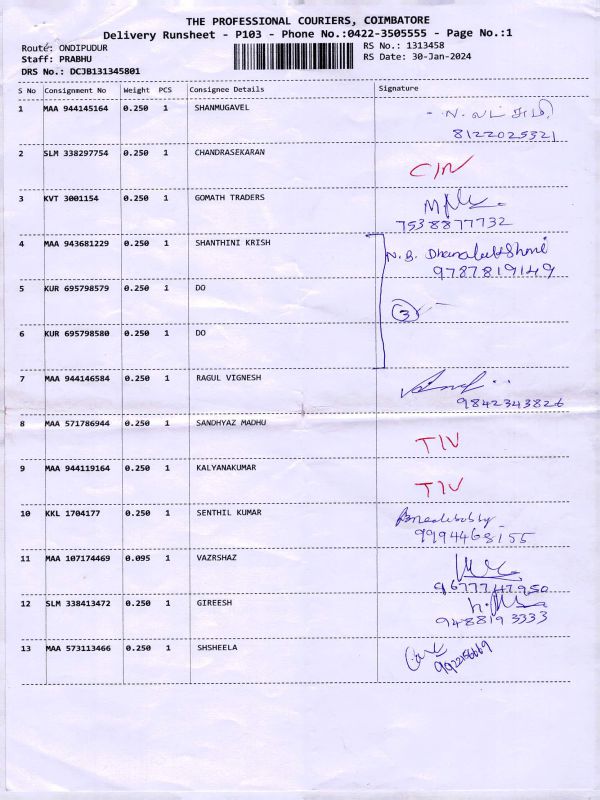 THE PROFESSIONAL COURIERS, COIMBATORE
Delivery Runsheet - P103 - Phone No.:0422-3505555 - Page No.:1
Route: ONDIPUDUR
Staff: PRABHU
DRS No.: DCJB131345801
RS No.: 1313458
RS Date: 30-Jan-2024
S No Consignment No Weight PCS Consignee Details Signature
1 MAA 944145164 0.250 1 SHANMUGAVEL
8122025321
2 SLM 338297754 0.250 1 CHANDRASEKARAN
3 KVT 3001154 0.250 1 GOMATH TRADERS
7538877732
4 MAA 943681229 0.250 1 SHANTHINI KRISH
9787819149
5 KUR 695798579 0.250 1 DO
3
6 KUR 695798580 0.250 1 DO
7 MAA 944146584 0.250 1 RAGUL VIGNESH
9842343826
8 MAA 571786944 0.250 1 SANDHYAZ MADHU
TIV
9 MAA 944119164 0.250 1 KALYANAKUMAR
TIV
10 KKL 1704177 0.250 1 SENTHIL KUMAR
9994468155
11 MAA 107174469 0.095 1 VAZRSHAZ
9677747950
12 SLM 338413472 0.250 1 GIREESH
9488193333
13 MAA 573113466 0.250 1 SHSHEELA